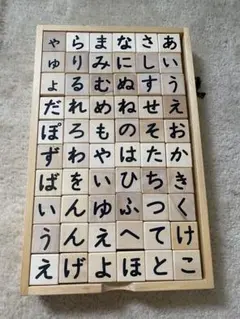 あいうえおかきくけこ
さしすせそたちつてと
なにぬねのはひふへほ
まみむめもやいゆえよ
らりるれろわをんんげ
ゃゅょだぽずばいうえ